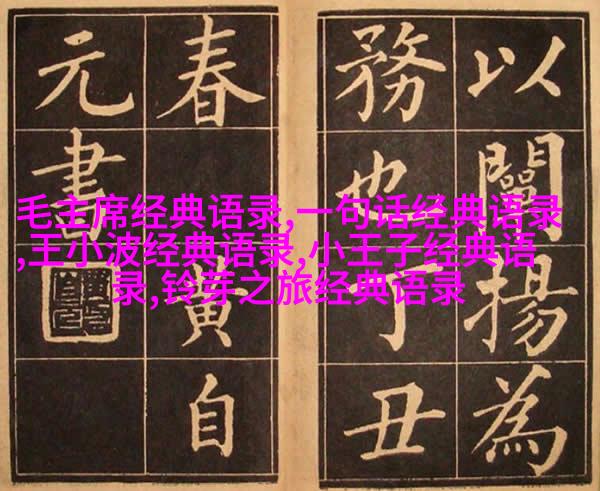 以闡揚為
務也丁丑
春黃自
元書
毛主席经典语录,一句话经典语录
,王小波经典语录,小王子经典语
录,铃芽之旅经典语录